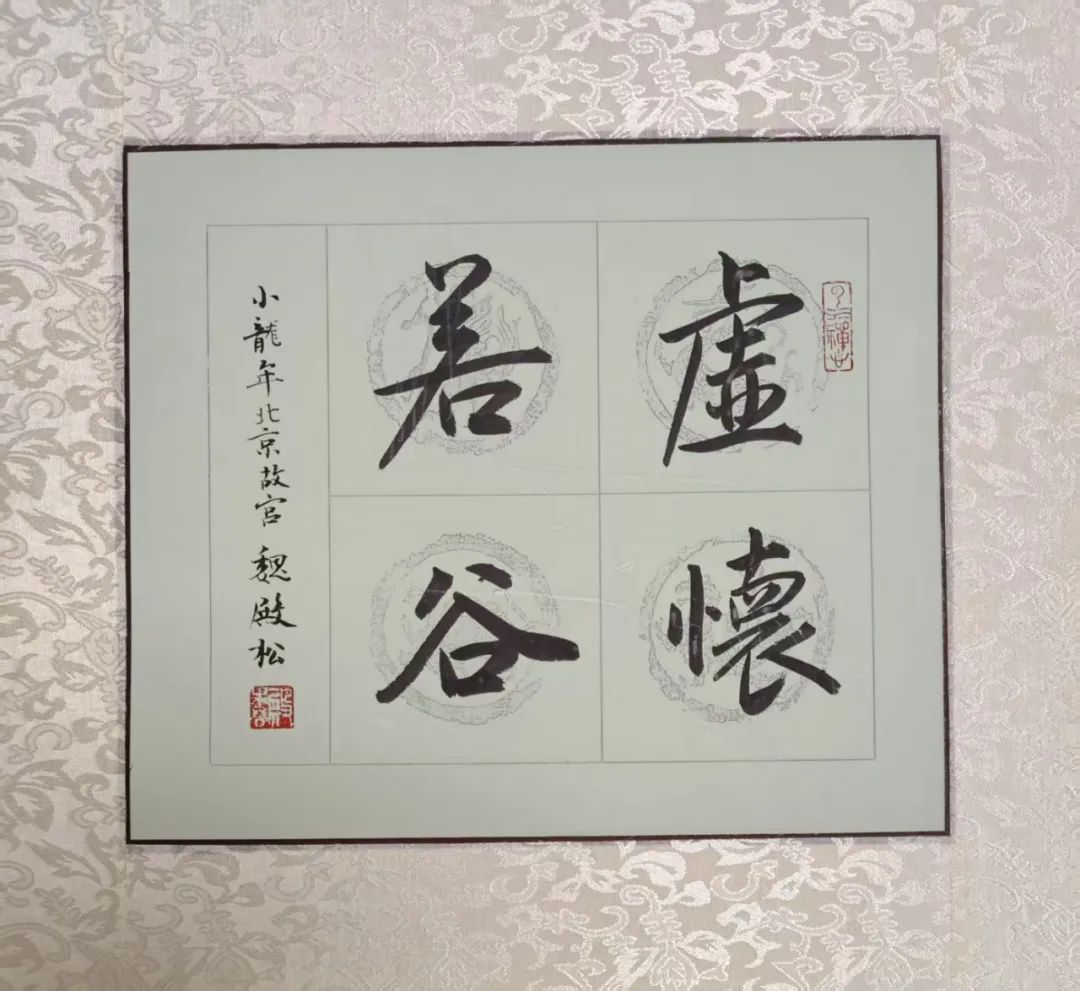 虛懷
若谷
小龍年北京故宮 魏殿松